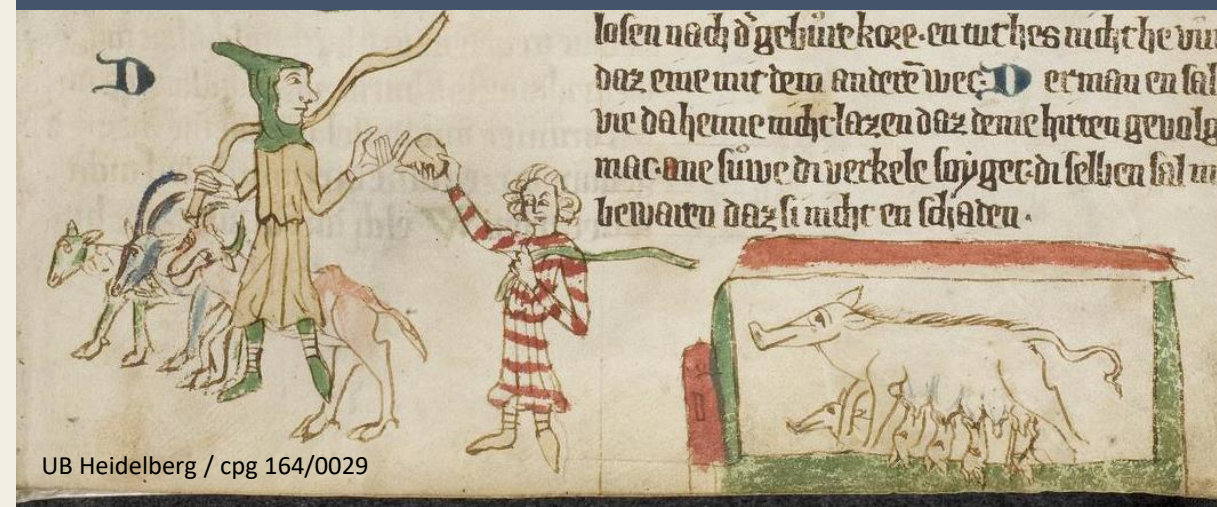 D
losen nach d' gebůrte kore. en tut hes nicht he vůr
daz eine mit dem anderē wec. D er man en sal
vie da heime nicht lazen daz deme hirten gevolg
mac. ane sůwe di verkele söyget. di selben sal m
bewaren daz si nicht en schaden.
UB Heidelberg / cpg 164/0029